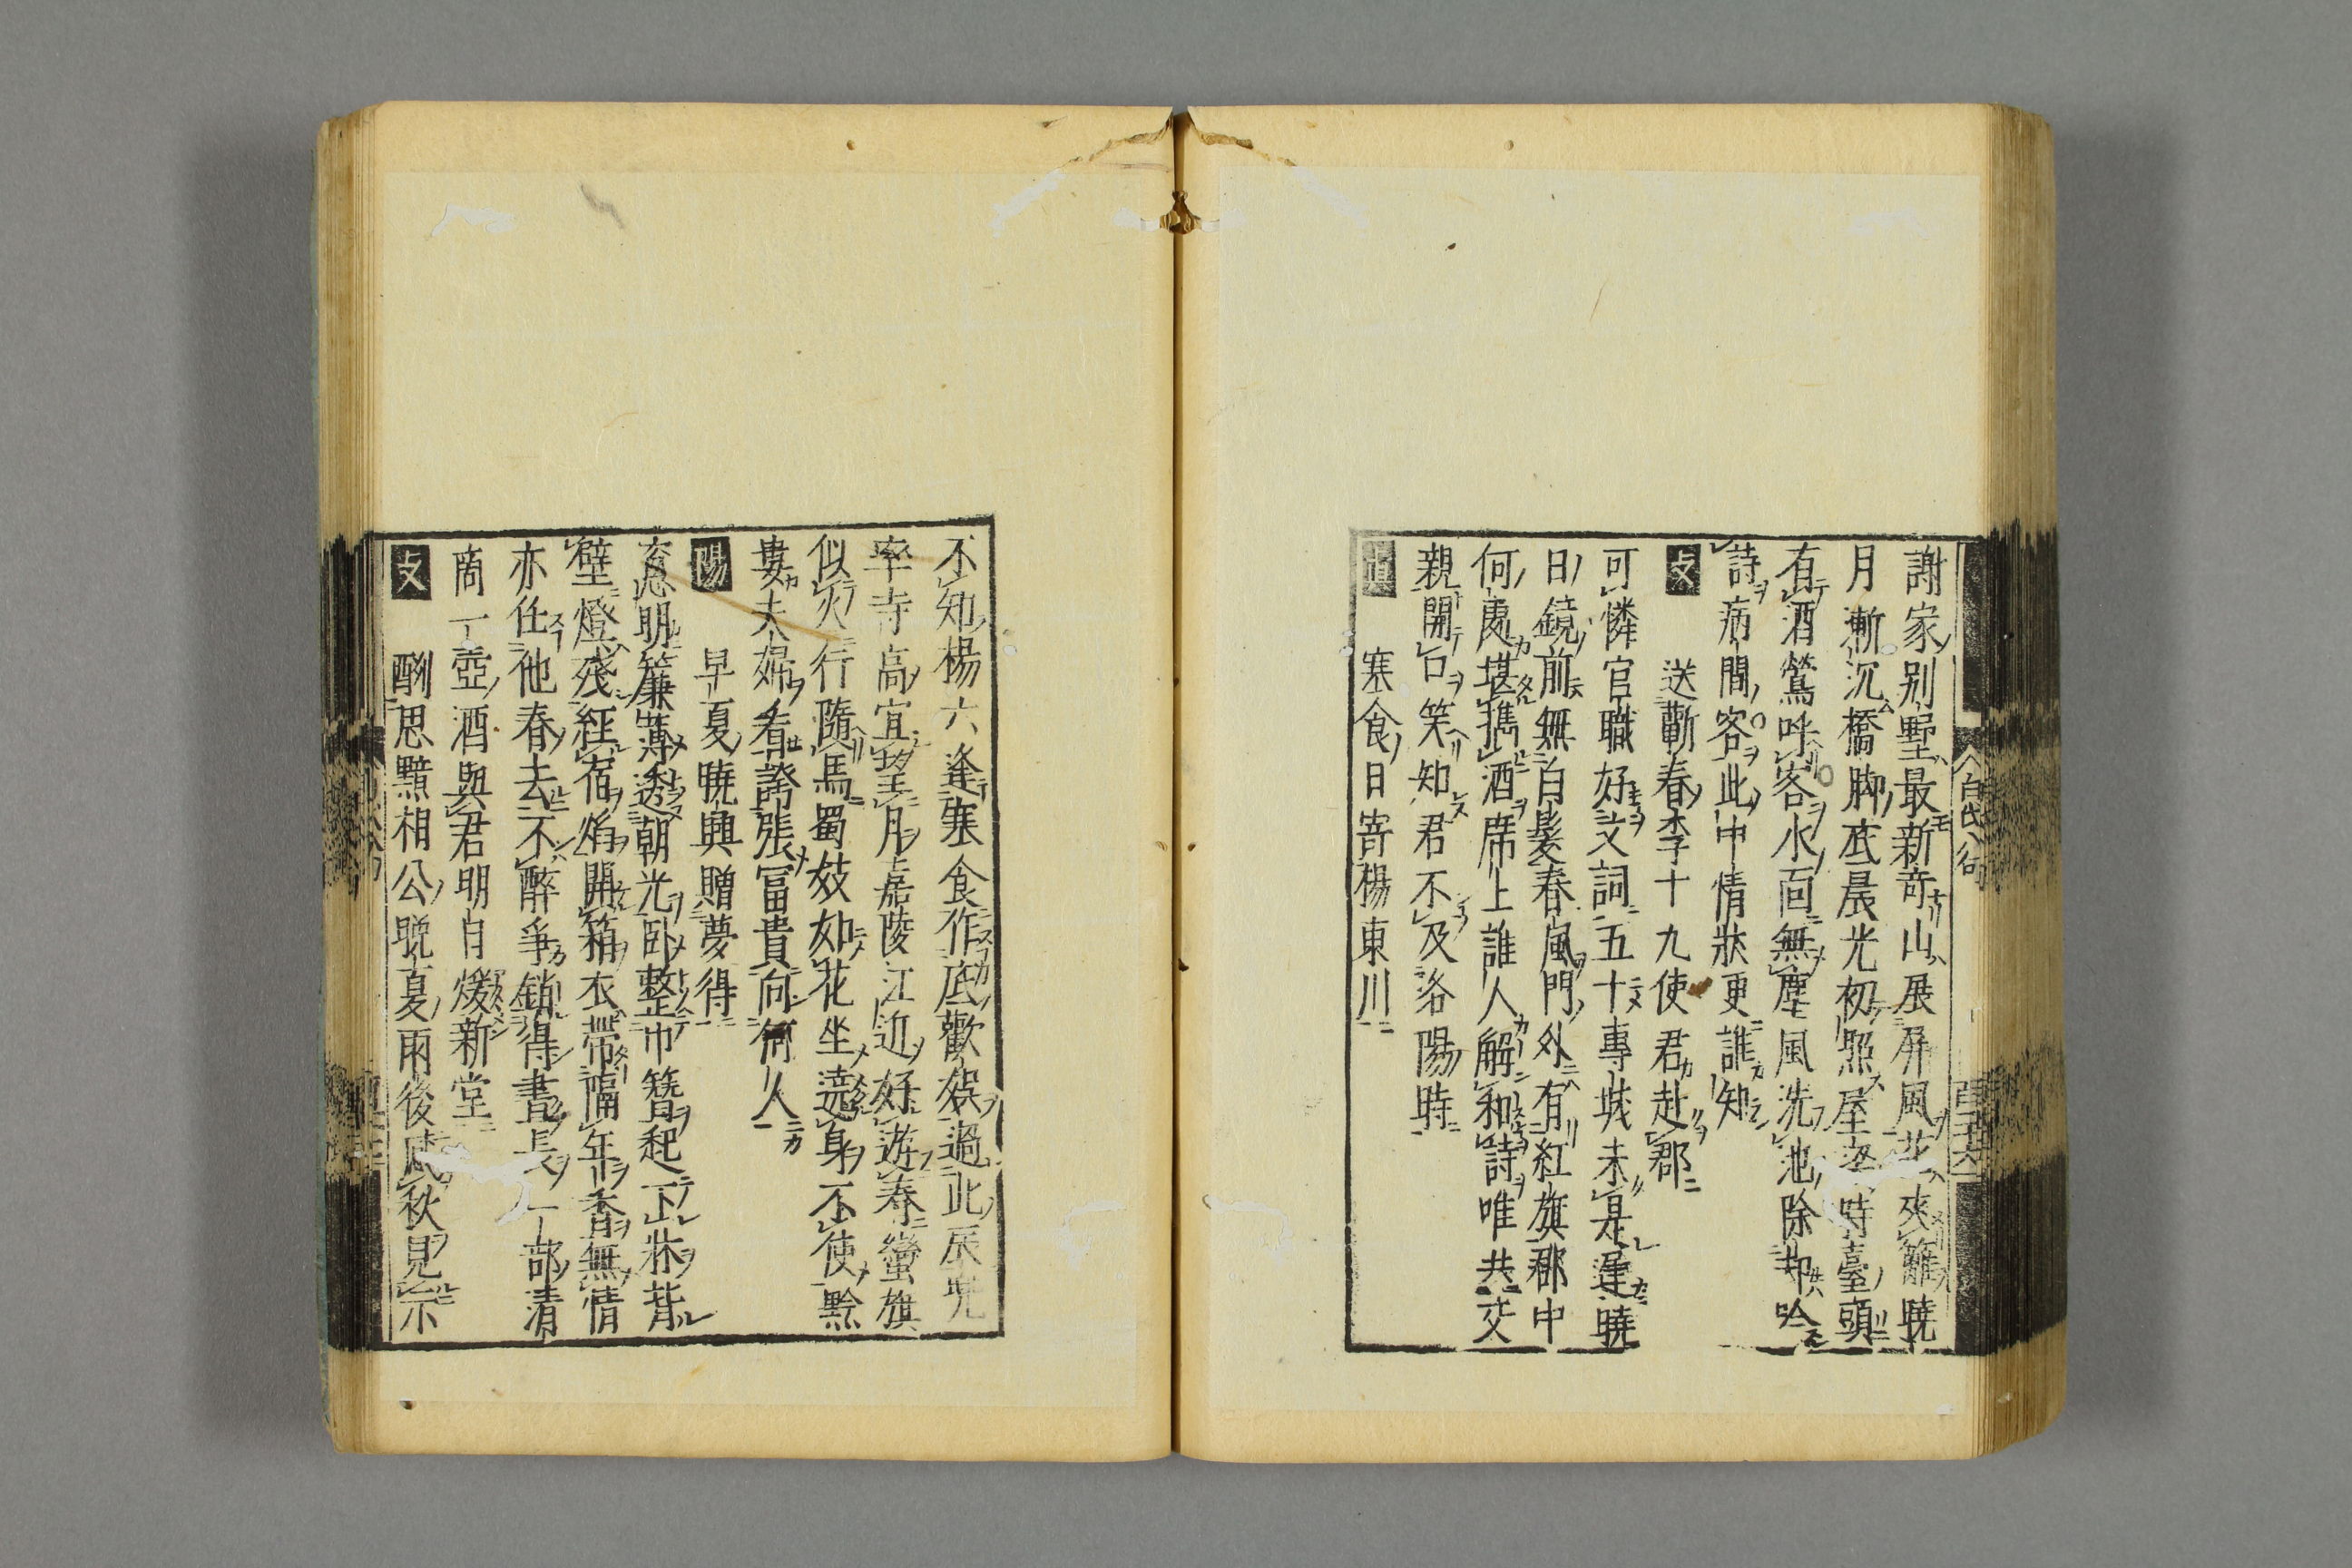 謝家別墅最新奇山展屏風花夾籬曉
月漸沉橋脚底晨光初照屋梁時臺頭
有酒鶯呼客水面無塵風洗池除却吟
詩病閒客此中情狀更誰知
支 送蘄春李十九使君赴郡
可憐官職好文詞五十專城未是遲曉
日鏡前無白髮春風門外有紅旗郡中
何處堪携酒席上誰人解和詩唯共交
親開口笑知君不及洛陽時
真 寒食日寄楊東川
不知楊六逢寒食作底歡娯過此辰兜
率寺高宜望月嘉陵江近好遊春蠻旗
似火行隨馬蜀妓如花坐遶身不使黔
婁夫婦看誇張冨貴向何人
陽 早夏曉興贈夢得
窓明簾薄透朝光卧整巾簪起下牀背
壁燈殘經宿焰開箱衣帶隔年香無情
亦任他春去不醉爭銷得晝長一部清
商一壺酒與君明日煖新堂
支 酬思黯相公晩夏雨後感秋見示
白氏八句